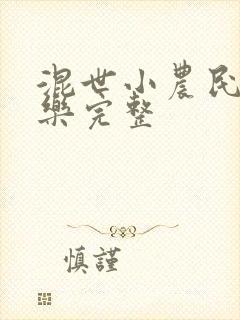 混世小農民
樂完整
慎謹